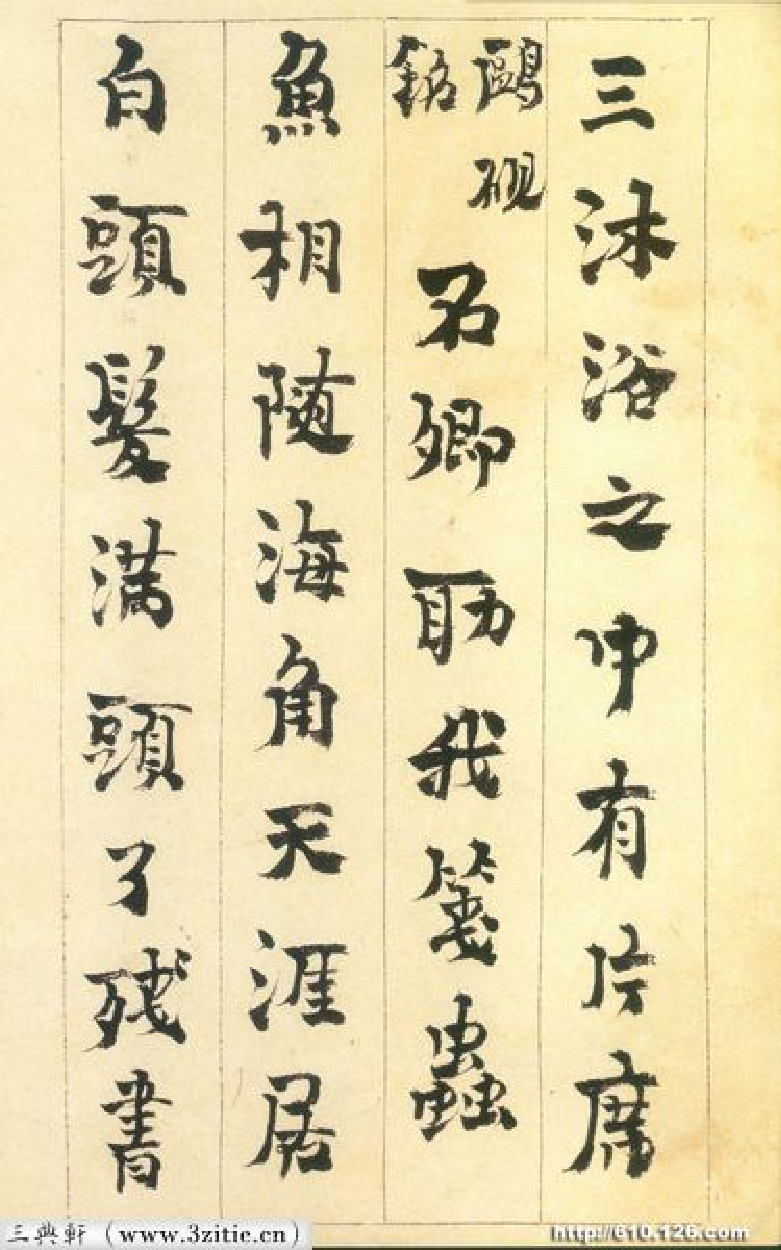 三沐浴之中有片席
鷗砚
銘
石卿助我箋蟲
魚相随海角天涯居
白頭髮满頭了残書
三典軒（www.3zitie.cn）
http://610.126.com